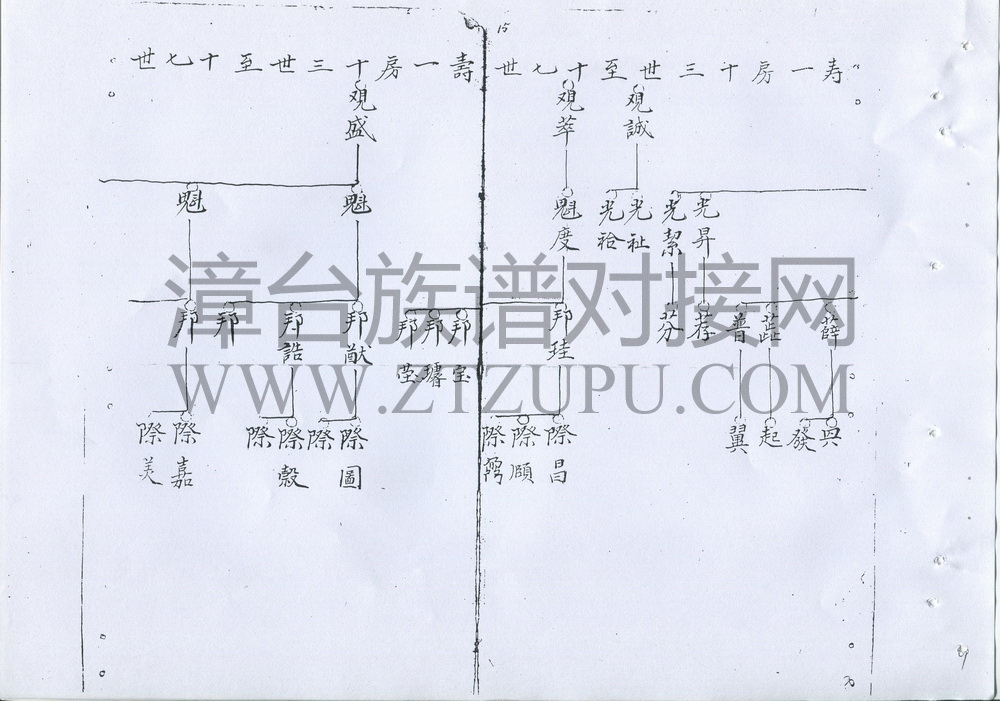 15
壽一房十三世至十七世
觀誠
觀萃
光昇
光絜
光祉
光袷
魁度
薛
茝
普
荐
芬
邦珪
邦宝
邦璿
邦莹
興
發
起
翼
際昌
際頤
際霱
壽一房十三世至十七世
觀盛
魁
魁
邦猷
邦誥
邦
邦
際圖
際
際穀
際
際嘉
際美
漳台族谱对接网
WWW.ZTZUPU.COM